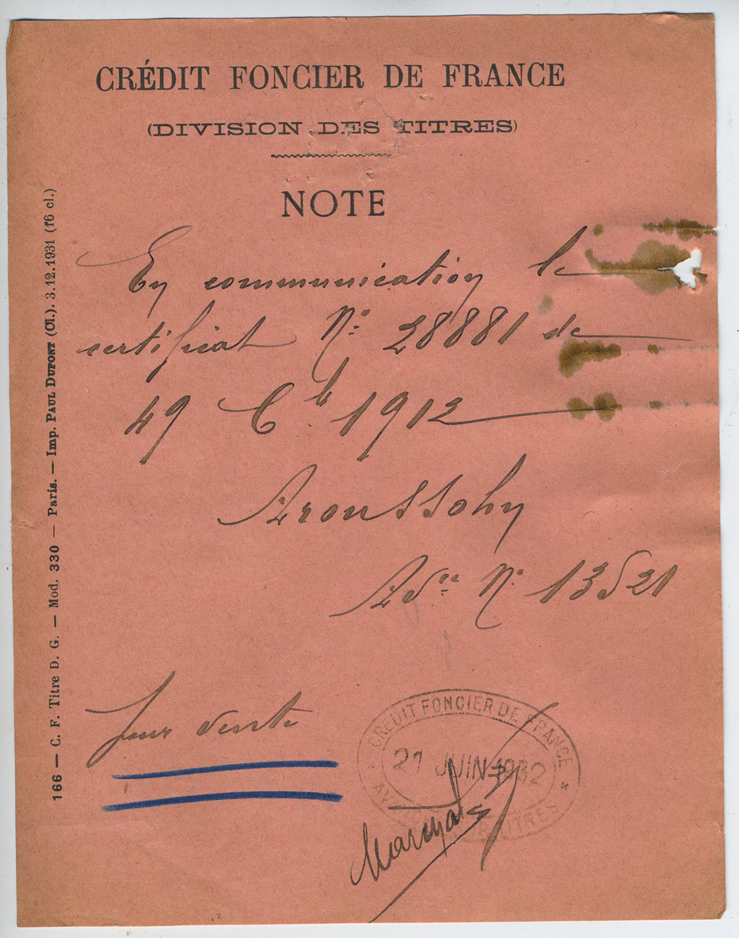 CRÉDIT FONCIER DE FRANCE
(DIVISION DES TITRES)
NOTE
En communication le
certificat N° 28881 de
49 C 1912
N° 13521
Pour vente
CRÉDIT FONCIER DE FRANCE
21 JUIN 1932
TITRES
166 — C. F. Titre D. G. — Mod. 330 — Paris. — Imp. PAUL DUPONT (Cl.). 3.12.1931 (f6 cl.)